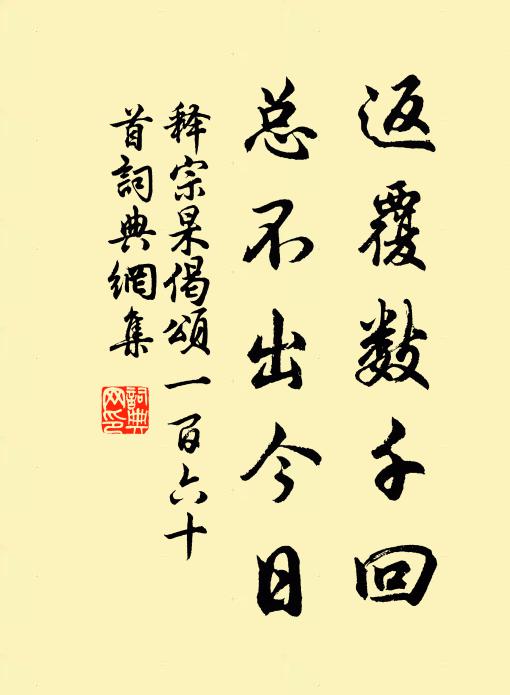 返覆数千回
总不出今日
释宗杲偈颂一百六十
首詞典網集
詞典网印